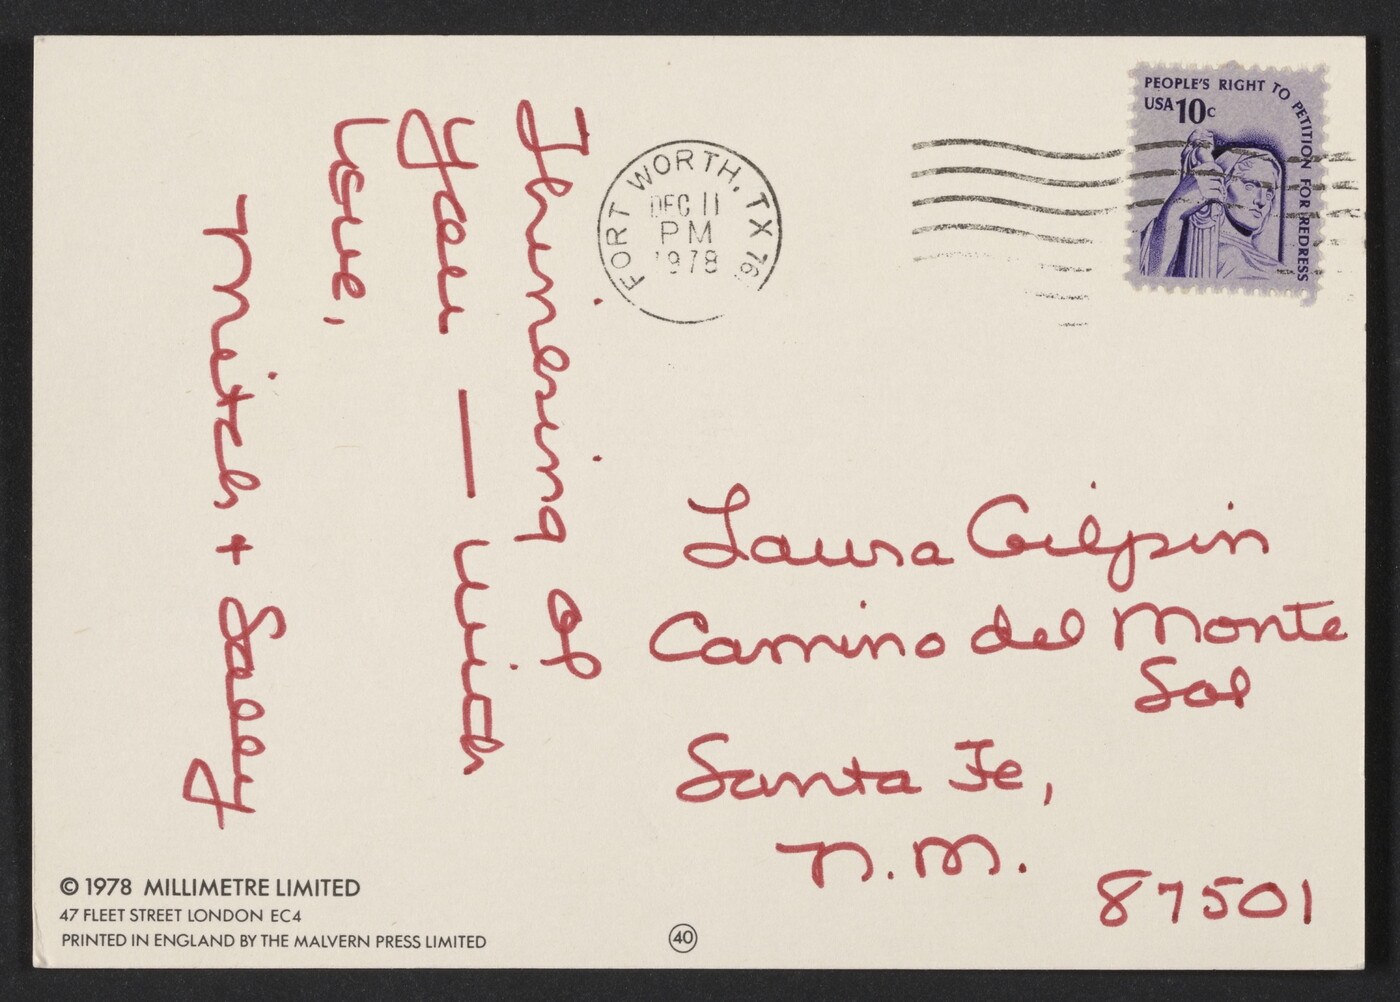 Thinking of
You — with
Love,
Mitch + Sally
FORT WORTH, TX 76
DEC 11
PM
1978
PEOPLE'S RIGHT TO PETITION FOR REDRESS
USA 10c
Laura Gilpin
Camino del Monte
Sol
Santa Fe,
N.M.
87501
© 1978 MILLIMETRE LIMITED
47 FLEET STREET LONDON EC4
PRINTED IN ENGLAND BY THE MALVERN PRESS LIMITED
40